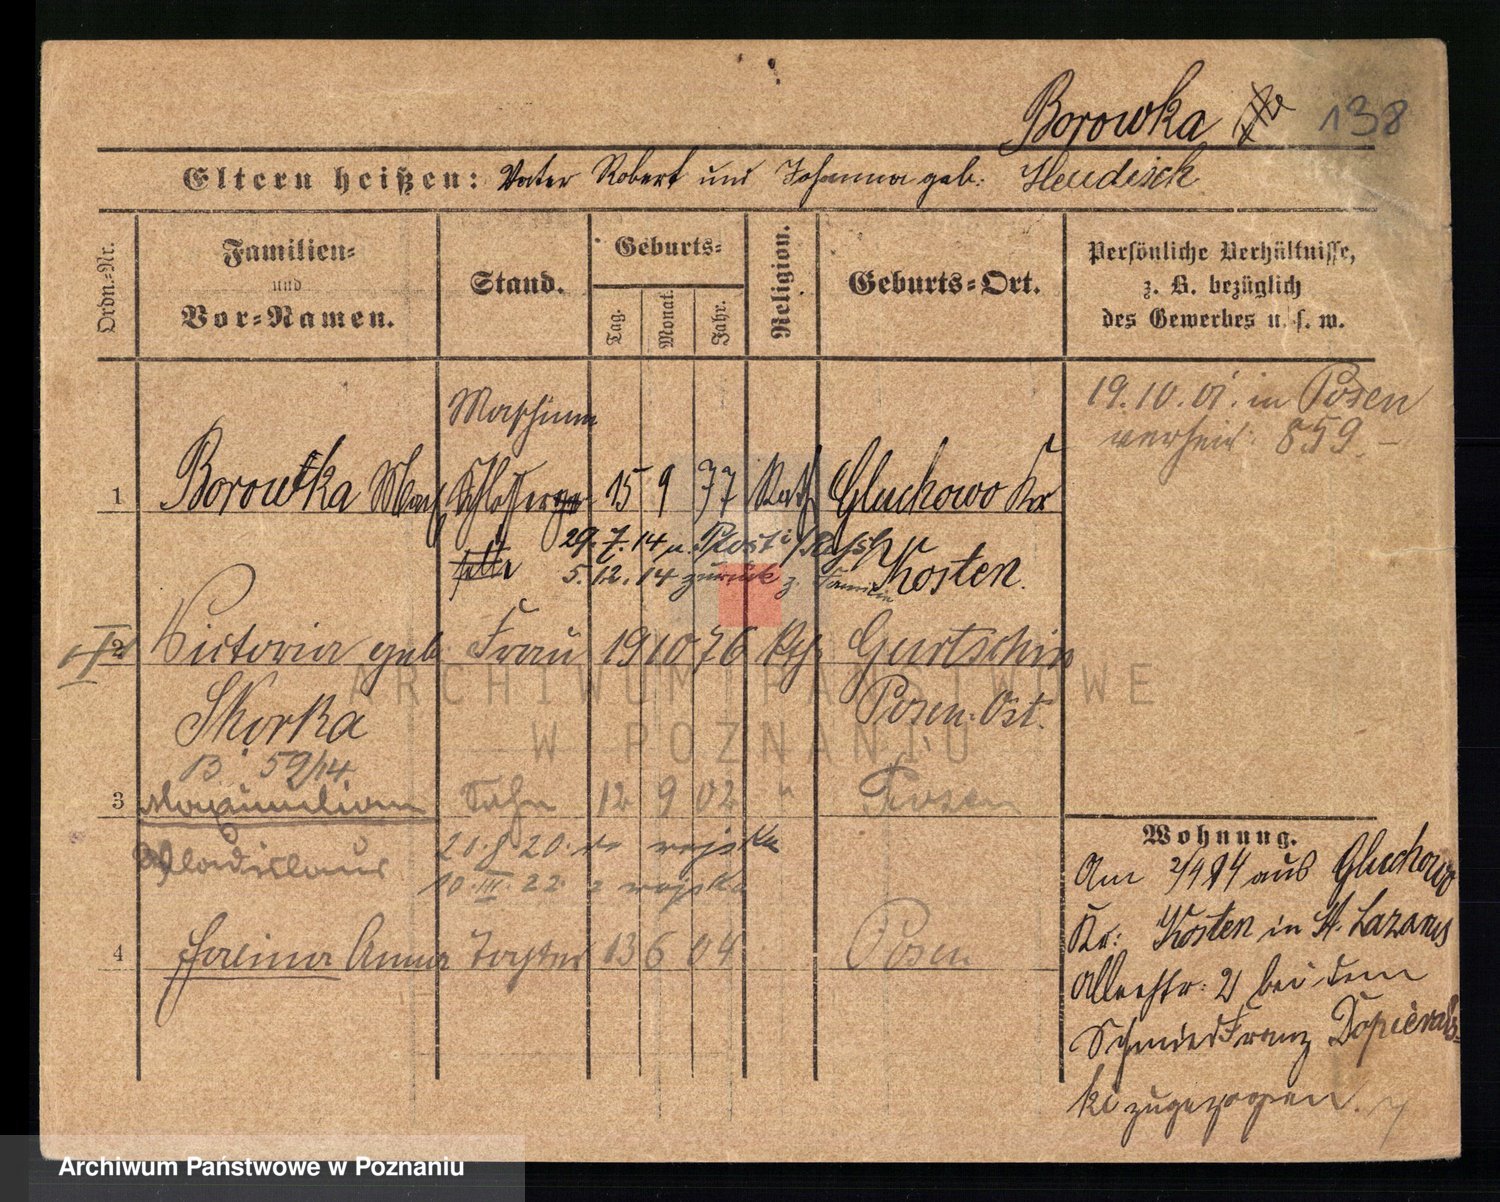 Borowka 138
Eltern heißen: Vater Robert und Johanna geb. Heudisch
Ordn.-Nr.
Familien-
und
Vor-Namen.
Stand.
Geburts-
Tag.
Monat.
Jahr.
Religion.
Geburts-Ort.
Persönliche Verhältnisse,
z. B. bezüglich
des Gewerbes u. s. w.
19.10.01. in Posen
verheir. 859.
Maschinen
1 Borowka Max Schlosser 15 9 77 Kath Gluchowo Kr
29.7.14 n.
5.12.14 zurück z. Familie Kosten.
2 Victoria geb. Frau 19 10 76 Kth. Gurtschin
Skorka Posen. Ost.
B. 59/14.
3 Maximilian Sohn 12 9 02 " Posen
Wladislaus 21.8.20. do wojska
10.III.22. z wojska
4 Halina Anna Tochter 13 6 04 Posen
Wohnung.
Am 2/4 94 aus Gluchowo
Kr: Kosten in St. Lazarus
Alleestr. 21 bei dem
Schmied Franz Dopierals-
ki zugezogen.
ARCHIWUM PAŃSTWOWE
W POZNANIU
Archiwum Państwowe w Poznaniu